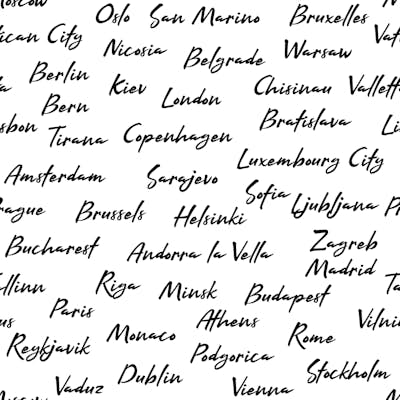 Moscow
Oslo San Marino Bruxelles
Vatican City Nicosia Belgrade Warsaw Vat
Berlin Kiev London Chisinau Vallett
Bern Bratislava
sbon Tirana Copenhagen Li
Luxembourg City
Amsterdam Sarajevo Sofia Ljubljana Pr
rague Brussels Helsinki
Bucharest Andorra la Vella Zagreb
Madrid
llinn Riga Minsk Budapest Ta
Paris Athens Vilni
us Monaco Rome
Reykjavik Podgorica
Vaduz Dublin Vienna Stockholm